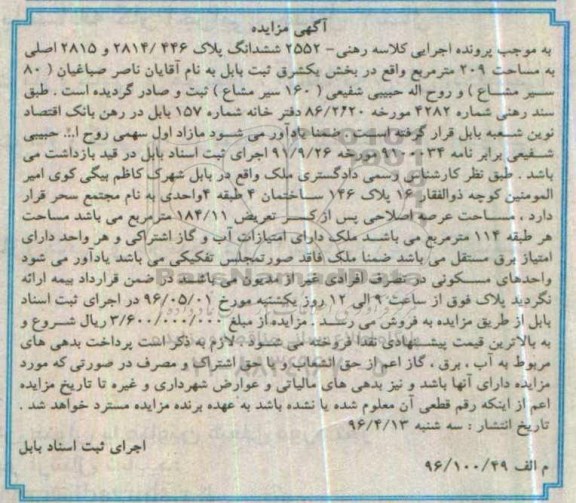 آگهی مزایده
به موجب پرونده اجرایی کلاسه رهنی- ۲۵۵۲ ششدانگ پلاک ۴۴۶ /۲۸۱۴ و ۲۸۱۵ اصلی
به مساحت ۲۰۹ مترمربع واقع در بخش یکشرق ثبت بابل به نام آقایان ناصر صباغیان ( ۸۰
سیر مشاع ) و روح اله حبیبی شفیعی ( ۱۶۰ سیر مشاع ) ثبت و صادر گردیده است . طبق
سند رهنی شماره ۴۲۸۲ مورخه ۸۶/۲/۲۰ دفتر خانه شماره ۱۵۷ بابل در رهن بانک اقتصاد
نوین شعبه بابل قرار گرفته است . ضمنا یادآور می شود مازاد اول سهمی روح ا... حبیبی
شفیعی برابر نامه مورخه ۹۱/۹/۲۶ اجرای ثبت اسناد بابل در قید بازداشت می
باشد . طبق نظر کارشناس رسمی دادگستری ملک واقع در بابل شهرک کاظم بیگی کوی امیر
المومنین کوچه ذوالفقار ۱۶ پلاک ۱۴۶ ساختمان ۴ طبقه ۴واحدی به نام مجتمع سحر قرار
دارد . مساحت عرصه اصلاحی پس از کسر تعریض ۱۸۴/۱۱ مترمربع می باشد مساحت
هر طبقه ۱۱۴ مترمربع می باشد ملک دارای امتیازات آب و گاز اشتراکی و هر واحد دارای
امتیاز برق مستقل می باشد ضمنا ملک فاقد صورتمجلس تفکیکی می باشد یادآور می شود
واحدهای مسکونی در تصرف افرادی غیر از مدیون می باشند در ضمن قرارداد بیمه ارائه
نگردید پلاک فوق از ساعت ۹ الی ۱۲ روز یکشنبه مورخ ۹۶/۰۵/۰۱ در اجرای ثبت اسناد
بابل از طریق مزایده به فروش می رسد . مزایده از مبلغ ۳/۶۰۰/۰۰۰/۰۰۰ ریال شروع و
به بالاترین قیمت پیشنهادی نقد فروخته می شود . لازم به ذکر است پرداخت بدهی های
مربوط به آب ، برق ، گاز اعم از حق انشعاب و یا حق اشتراک و مصرف در صورتی که مورد
مزایده دارای آنها باشد و نیز بدهی های مالیاتی و عوارض شهرداری و غیره تا تاریخ مزایده
اعم از اینکه رقم قطعی آن معلوم شده یا نشده باشد به عهده برنده مزایده مسترد خواهد شد .
تاریخ انتشار : سه شنبه ۹۶/۴/۱۳
اجرای ثبت اسناد بابل
م الف ۹۶/۱۰۰/۴۹